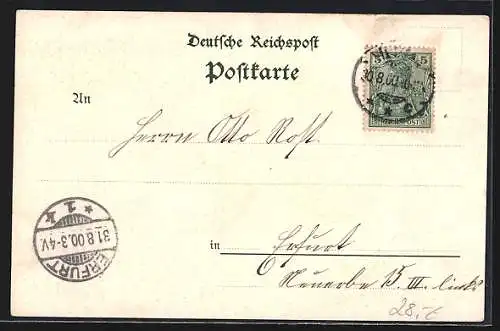 Deutsche Reichspost
Postkarte
An
Herrn Otto Rost.
5
30.8.00
in Erfurt
Neuerbe 15. III. links
1 k
31.8.00.3-4V.
ERFURT
28,-